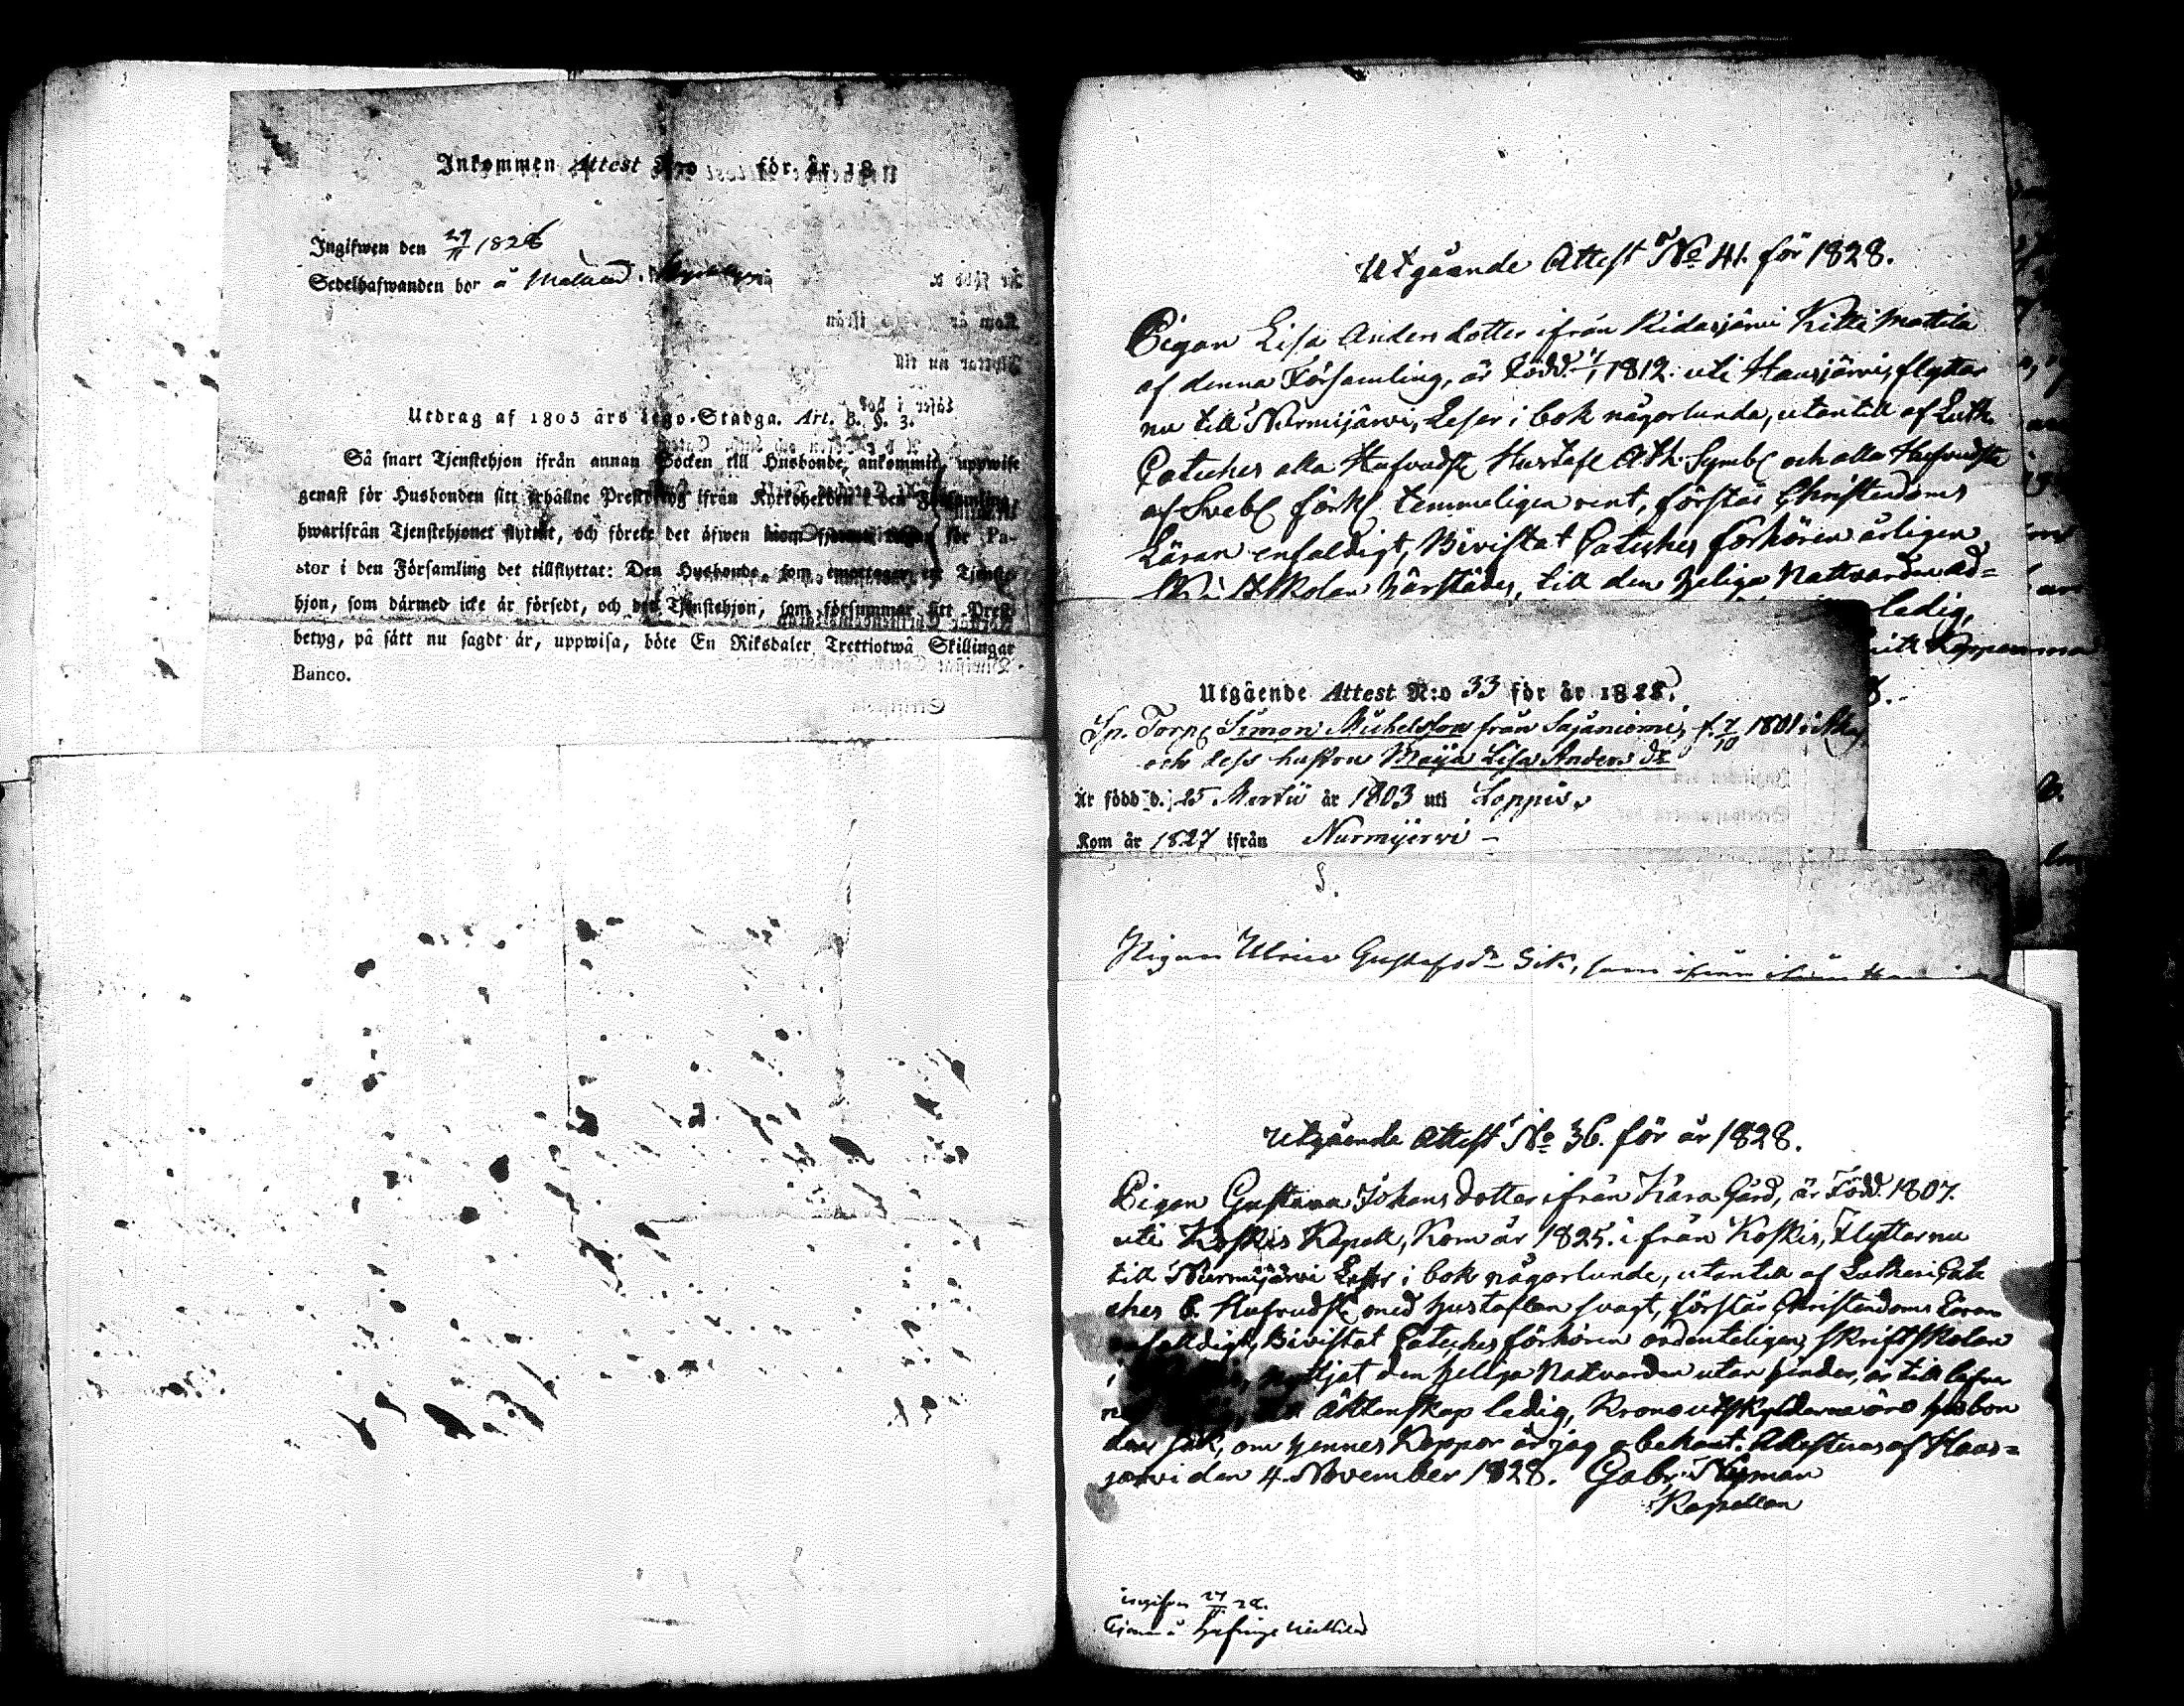 Inkommen Attest N:o för år 18
Ingifwen den 29/11 1828
Sedelhafwanden bor å
Utdrag af 1805 års Lego-Stadga. Art. 3. §. 3.
Så snart Tjenstehjon ifrån annan Socken till Husbonde, ankommit, uppwise
genast för Husbonden sitt erhållne Prestbetyg ifrån Kyrkoherden i den Församling
hwarifrån Tjenstehjonet flyttat, och förete det äfwen inom för Pa-
stor i den Församling det tillflyttat: Den Husbonde, som emottager ett Tjenste-
hjon, som därmed icke är försedt, och det Tjenstehjon, som försummar sitt Prest-
betyg, på sätt nu sagdt är, uppwisa, böte En Riksdaler Trettiotwå Skillingar
Banco.
Utgående Attest No 41. för 1828.
Pigan Lisa Anders dotter ifrån Ridasjärvi Kitti Mattila
af denna Församling, är Född 1812. uti Hausjärvi, flyttar
nu till Nurmijärvi, Leser i bok någorlunda, utantill af Luth.
Cateches alla Hufvudst Hustafl Ath. Symb och alla Hufvudst
af Sveb förkl temmeligen rent, förstår Christendoms
Läran enfaldigt, Bivistat Cateches förhören årligen
Skolan härstädes, till den heliga Nattvarden ad-
ledig,
Koppor
8.
Utgående Attest N:o 33 för år 1828.
Sp. Torp Simon Michelsson från Sajaniemi, f. 7/10 1801
och dess hustru Maija Lisa Anders dr
Är född d. 25 Martii år 1803 uti Loppis
Kom år 1827 ifrån Nurmijerwi -
S.
Pigan Ulrica Gustafsdr Sik, som ifrån
Utgående Attest No 36. för år 1828.
Pigan Gustava Johans dotter ifrån Kara Gård, är Född 1807.
uti Koskis Kapell, Kom år 1825. ifrån Koskis, Flyttar nu
till Nurmijärvi Leser i bok någorlunda, utantill af Lutheri Cate
ches 6. Hufvudst med hustaflan svagt, förstår Christendoms Läran
enfalldigt, Bivistat Cateches förhören ordenteligen, skriftskolan
i nyttjat den heliga Nattvarden utan hinder, är till lefver
äktenskap ledig, Kronoutskylderna äro husbon
dens sak, om hennes Koppor är jag obekant. Attesteras af Haus-
järvi den 4. November 1828. Gabr. Nyman
Kapellan
ingifven 27/11 28.
Tjenar å